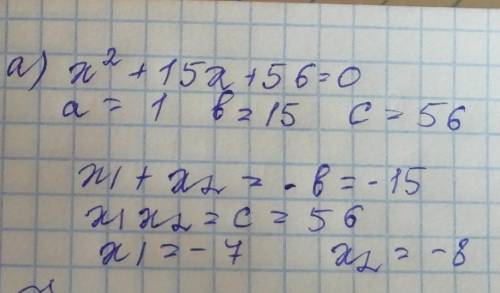 а) x² + 15x + 56 = 0
a = 1 в = 15 c = 56
x1 + x2 = - в = -15
x1 x2 = c = 56
x1 = -7 x2 = -8